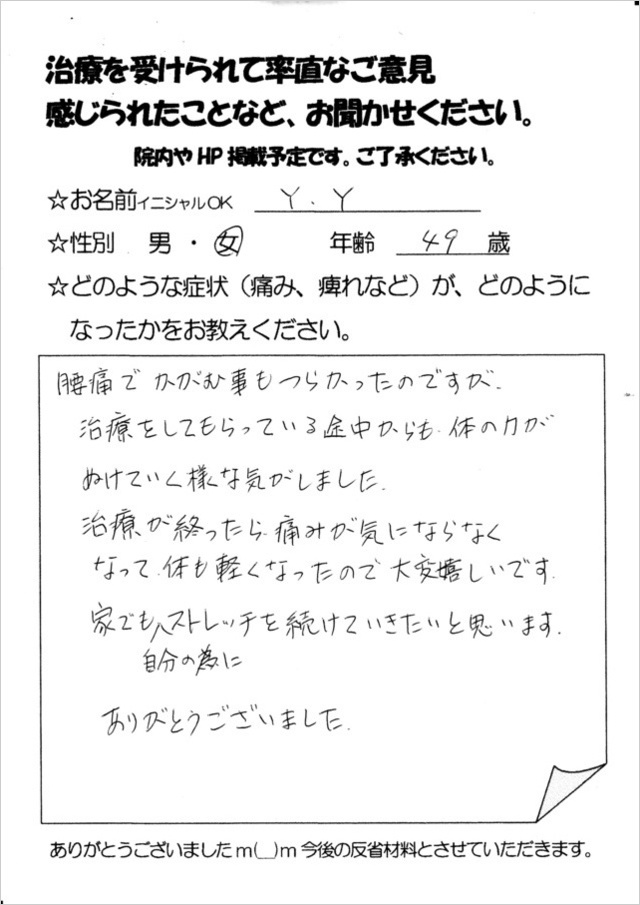 治療を受けられて率直なご意見
感じられたことなど、お聞かせください。
院内やHP掲載予定です。ご了承ください。
☆お名前イニシャルOK Y.Y
☆性別 男・女 年齢 49 歳
☆どのような症状（痛み、痺れなど）が、どのように
なったかをお教えください。
腰痛で かがむ事もつらかったのですが、
治療をしてもらっている途中からも 体の力が
ぬけていく様な気がしました。
治療が終ったら 痛みが気にならなく
なって 体も軽くなったので 大変嬉しいです。
家でもストレッチを続けていきたいと思います。
自分の為に
ありがとうございました。
ありがとうございましたm(__)m今後の反省材料とさせていただきます。